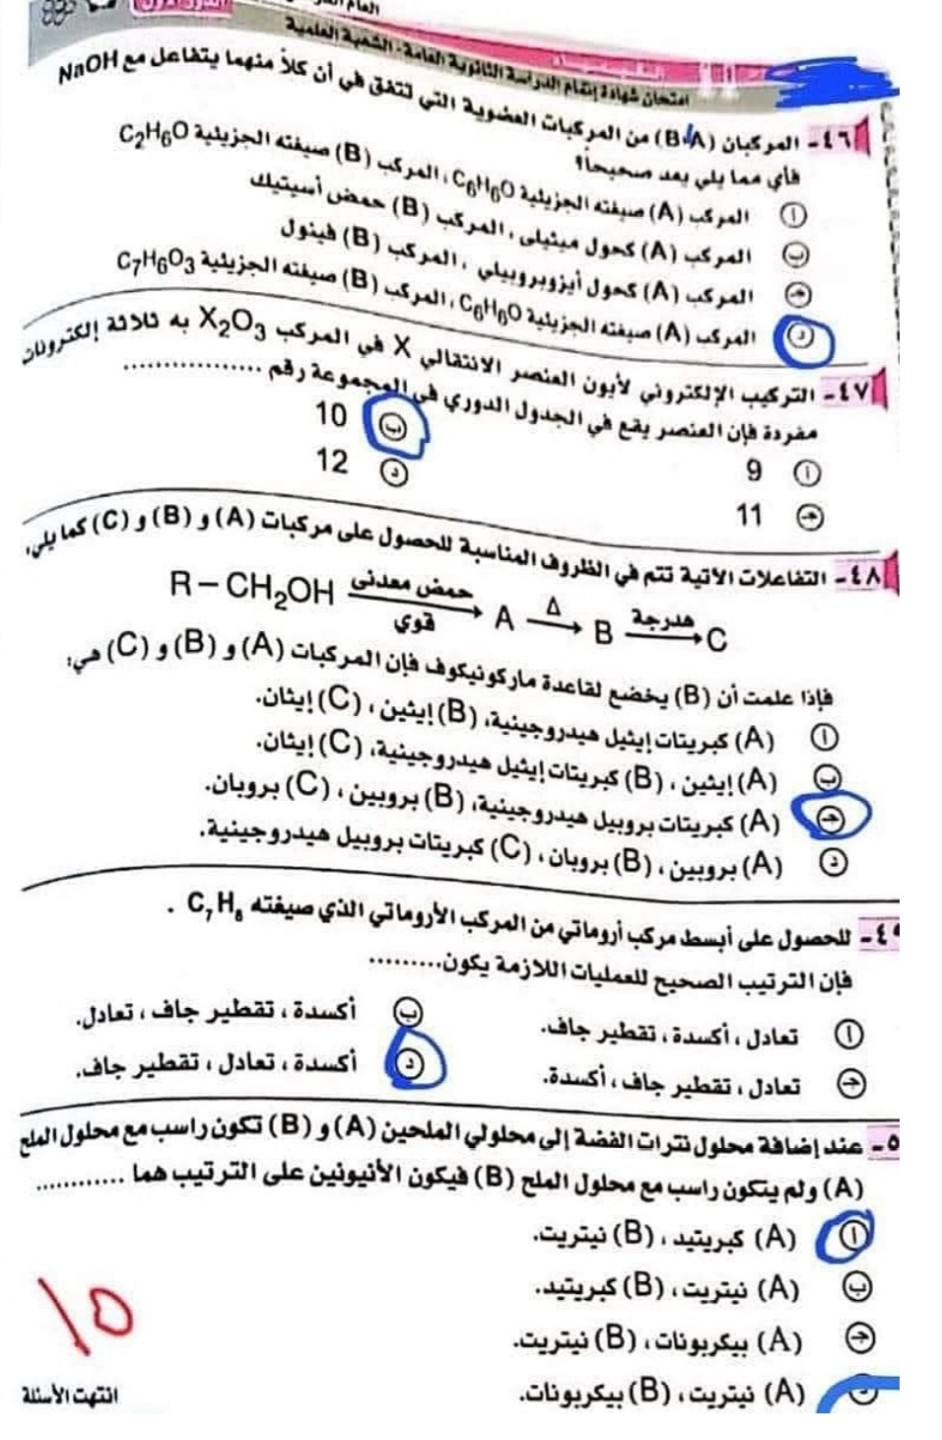 العام
الدور الأول
امتحان شهادة إتمام الدراسة الثانوية العامة - الشعبة العلمية
٤٦- المركبان (A ، B) من المركبات العضوية التي تتفق في أن كلاً منهما يتفاعل مع NaOH
فأي مما يلي يعد صحيحاً؟
أ المركب (A) صيغته الجزيئية C₆H₆O ، المركب (B) صيغته الجزيئية C₂H₆O
ب المركب (A) كحول ميثيلي ، المركب (B) حمض أسيتيك
جـ المركب (A) كحول أيزوبروبيلي ، المركب (B) فينول
د المركب (A) صيغته الجزيئية C₆H₆O ، المركب (B) صيغته الجزيئية C₇H₆O₃
٤٧- التركيب الإلكتروني لأيون العنصر الانتقالي X في المركب X₂O₃ به ثلاثة إلكترونات
مفردة فإن العنصر يقع في الجدول الدوري في المجموعة رقم ...............
أ 9
ب 10
جـ 11
د 12
٤٨- التفاعلات الآتية تتم في الظروف المناسبة للحصول على مركبات (A) و (B) و (C) كما يلي:
R – CH₂OH حمض معدنى قوي → A Δ → B هدرجة → C
فإذا علمت أن (B) يخضع لقاعدة ماركونيكوف فإن المركبات (A) و (B) و (C) هي:
أ (A) كبريتات إيثيل هيدروجينية، (B) إيثين ، (C) إيثان.
ب (A) إيثين ، (B) كبريتات إيثيل هيدروجينية، (C) إيثان.
جـ (A) كبريتات بروبيل هيدروجينية، (B) بروبين ، (C) بروبان.
د (A) بروبين ، (B) بروبان ، (C) كبريتات بروبيل هيدروجينية.
٤٩- للحصول على أبسط مركب أروماتي من المركب الأروماتي الذي صيغته C₇H₈ .
فإن الترتيب الصحيح للعمليات اللازمة يكون.........
أ تعادل ، أكسدة ، تقطير جاف.
ب أكسدة ، تقطير جاف ، تعادل.
جـ تعادل ، تقطير جاف ، أكسدة.
د أكسدة ، تعادل ، تقطير جاف.
٥- عند إضافة محلول نترات الفضة إلى محلولي الملحين (A) و (B) تكون راسب مع محلول الملح
(A) ولم يتكون راسب مع محلول الملح (B) فيكون الأنيونين على الترتيب هما ............
أ (A) كبريتيد ، (B) نيتريت.
ب (A) نيتريت ، (B) كبريتيد.
جـ (A) بيكربونات ، (B) نيتريت.
د (A) نيتريت ، (B) بيكربونات.
١٥
انتهت الأسئلة